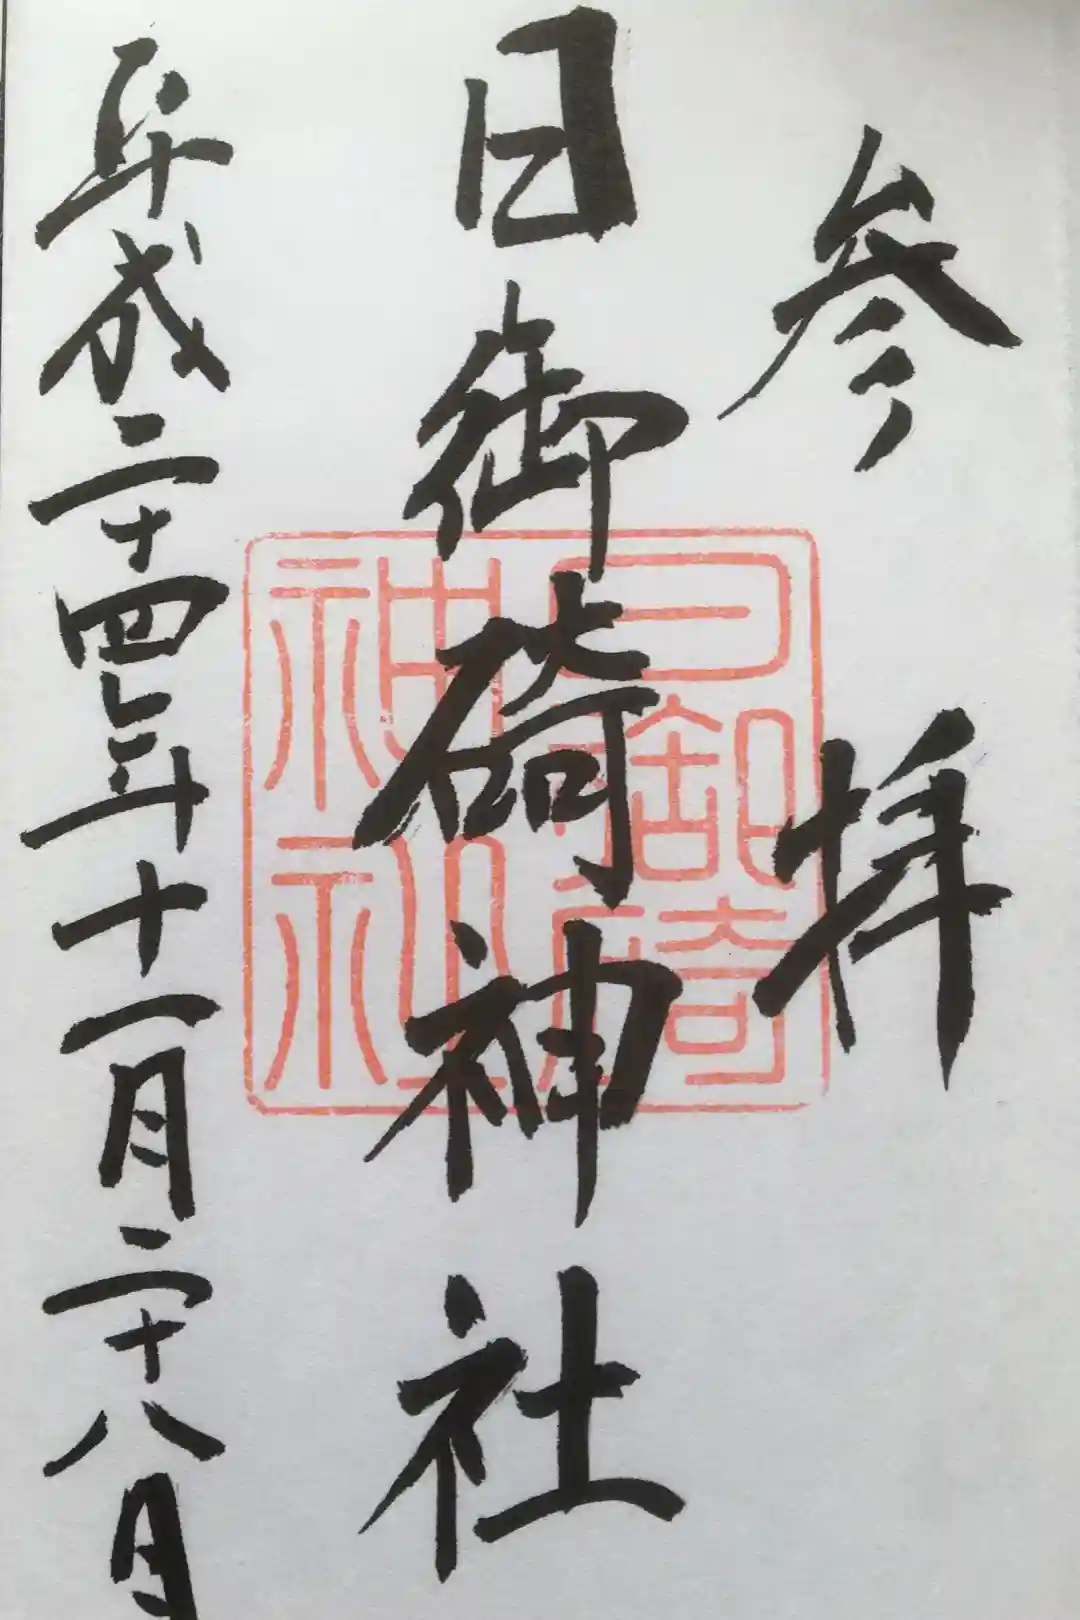 参拝
日御碕神社
日御碕神社
平成二十四年十一月二十八日